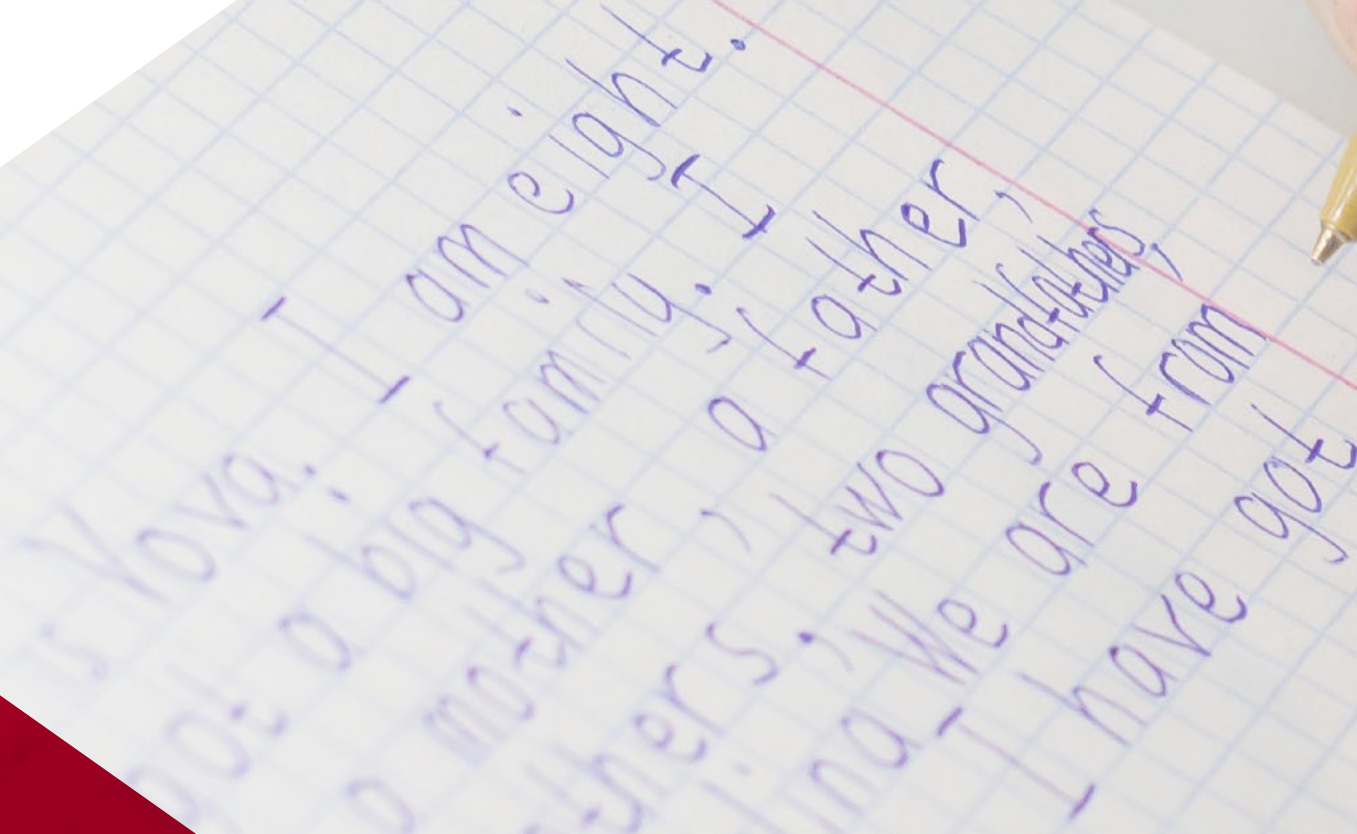 s Vova. I am eight.
got a big family. I
a mother, a father,
thers, two grandfathers,
ina We are from
I have got